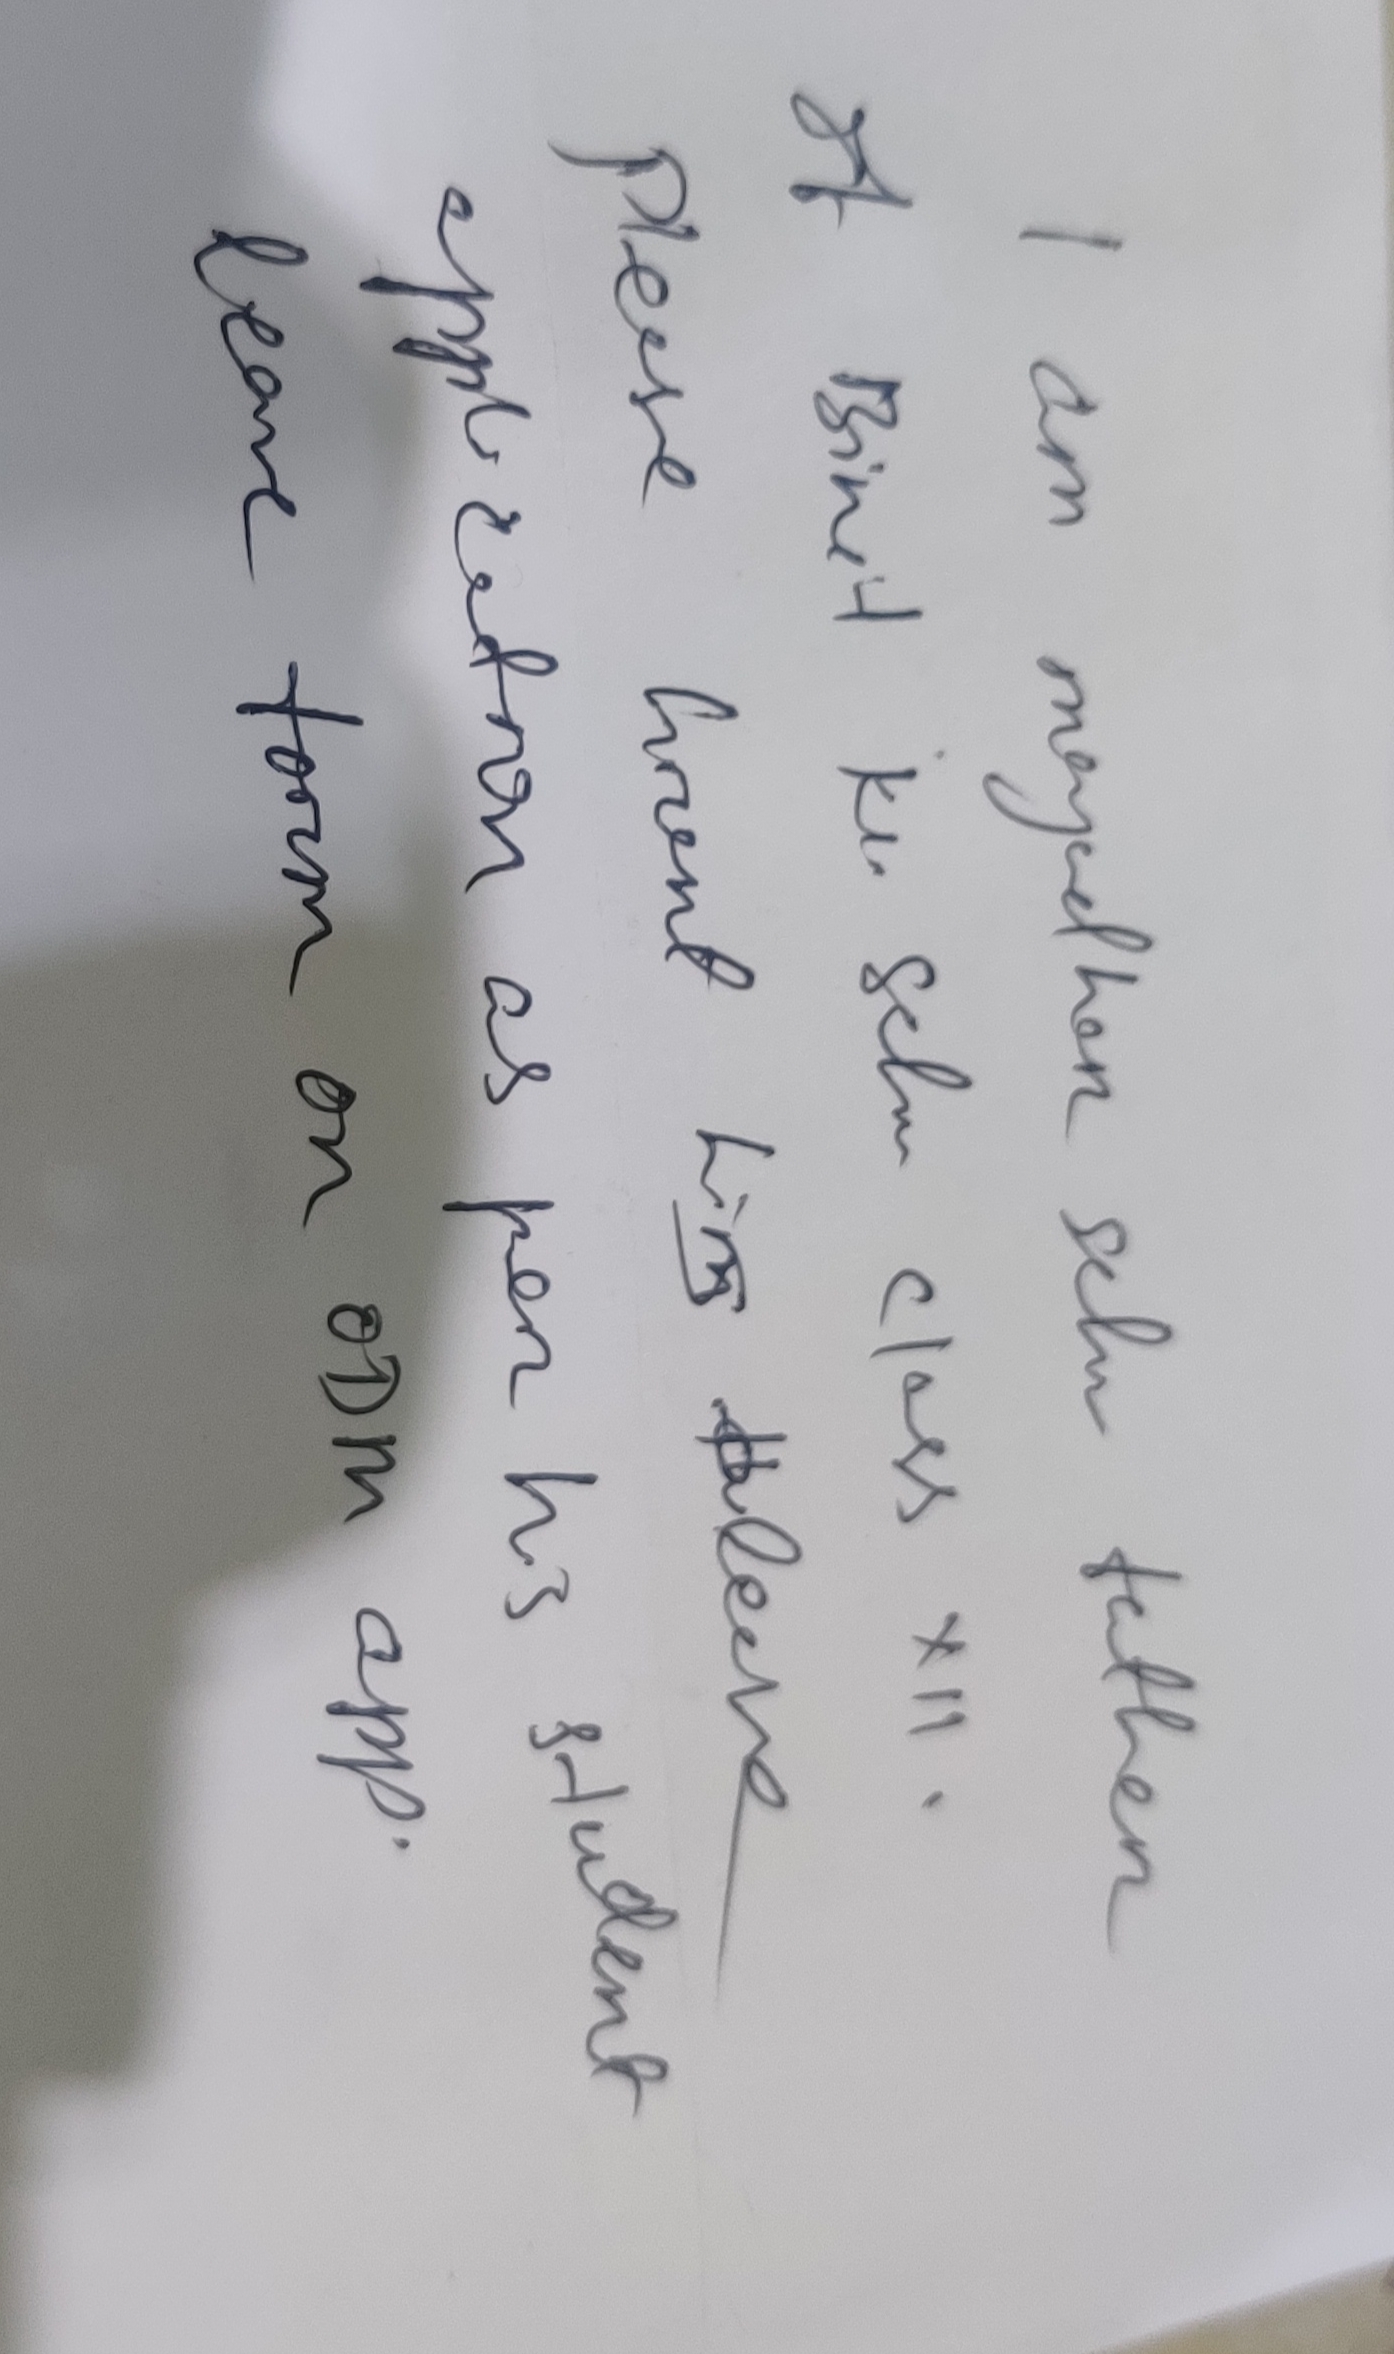 I am mayadhar sahu father
of Binit ku. sahu class XII.
Please grant him leave
application as per his student
leave form on ODM app.